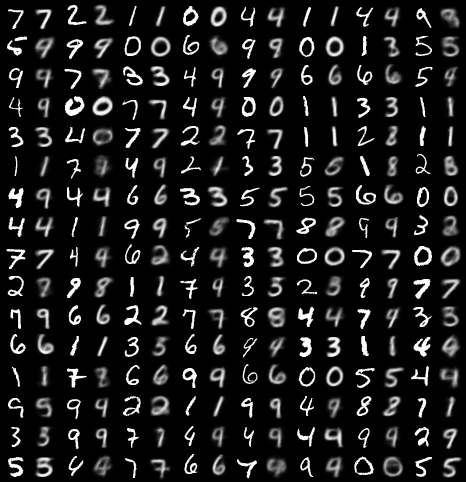 7 7 2 2 1 1 0 0 4 4 1 1 4 4 9
5 9 9 9 0 0 6 6 9 9 0 0 1 3 5 5
9 9 7 7 3 3 4 9 9 9 6 6 6 6 5 4
4 9 0 0 7 7 4 9 0 0 1 1 3 3 1 1
3 3 4 0 7 7 2 2 7 7 1 1 2 8 1 1
1 1 7 4 9 2 3 3 5 6 1 8 2 8
4 9 4 4 6 6 3 3 5 5 5 5 6 6 0 0
4 4 1 1 9 9 5 7 7 8 8 9 9 3 2
7 7 4 4 6 2 4 4 3 3 0 0 7 7 0 0
2 9 8 1 1 7 9 3 3 2 3 9 9 7 7
7 9 6 6 2 2 7 7 8 8 4 4 7 9 3 3
6 6 1 1 3 3 6 6 9 4 3 3 1 1 4 4
1 1 7 6 6 9 9 6 6 0 0 5 5 4 4
9 5 9 9 2 2 1 1 9 9 4 9 8 8 7 1
3 3 9 9 7 1 4 9 4 9 4 4 9 9 2 9
5 5 4 4 7 7 6 6 7 9 4 0 0 5 5